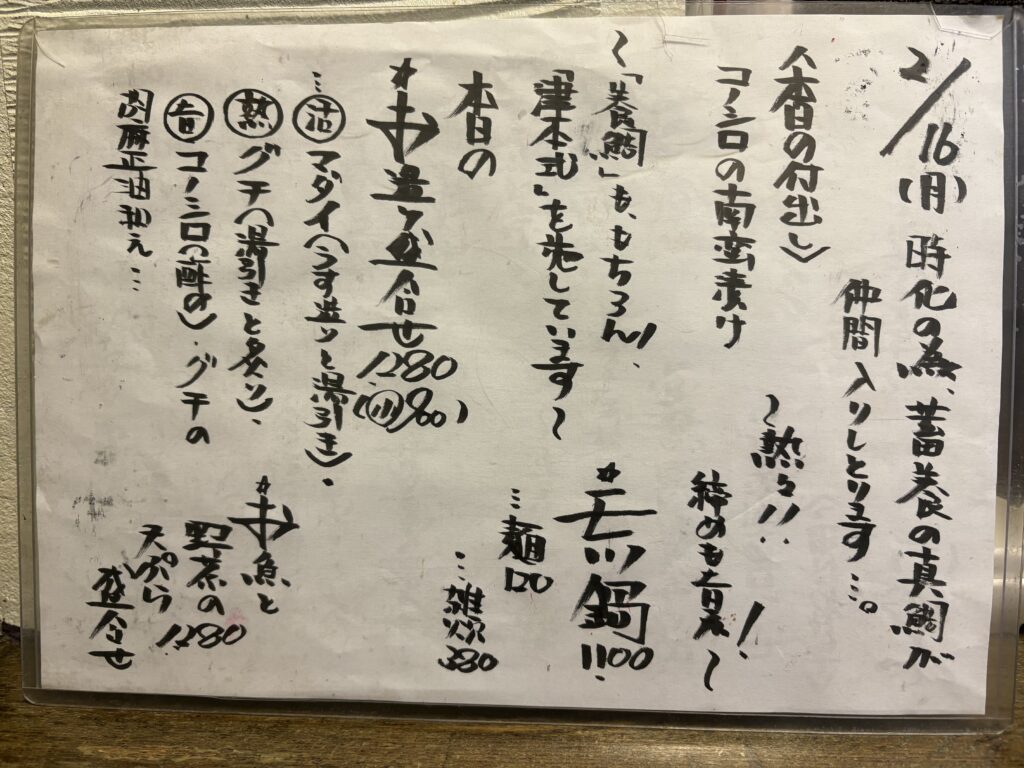 2/16(月) 時化の為、蓄養の真鯛が
仲間入りしとります…。
〈本日の付出し〉
コノシロの南蛮漬け
〜「養鯛」も、もちろん!、
「津本式」を施しています〜
本日の
*お造り盛合せ
1,280
(小 900)
…活 マダイ(うす造りと湯引き)、
熟 グチ(湯引きと炙り)、
旨 コノシロ(酢〆)・グチの
胡麻正油和え…
〜熱々!!
締めも旨え!〜
鍋
1,100
…麺
120
…雑炊
380
*お魚と
野菜の
天ぷら
盛合せ
1,280